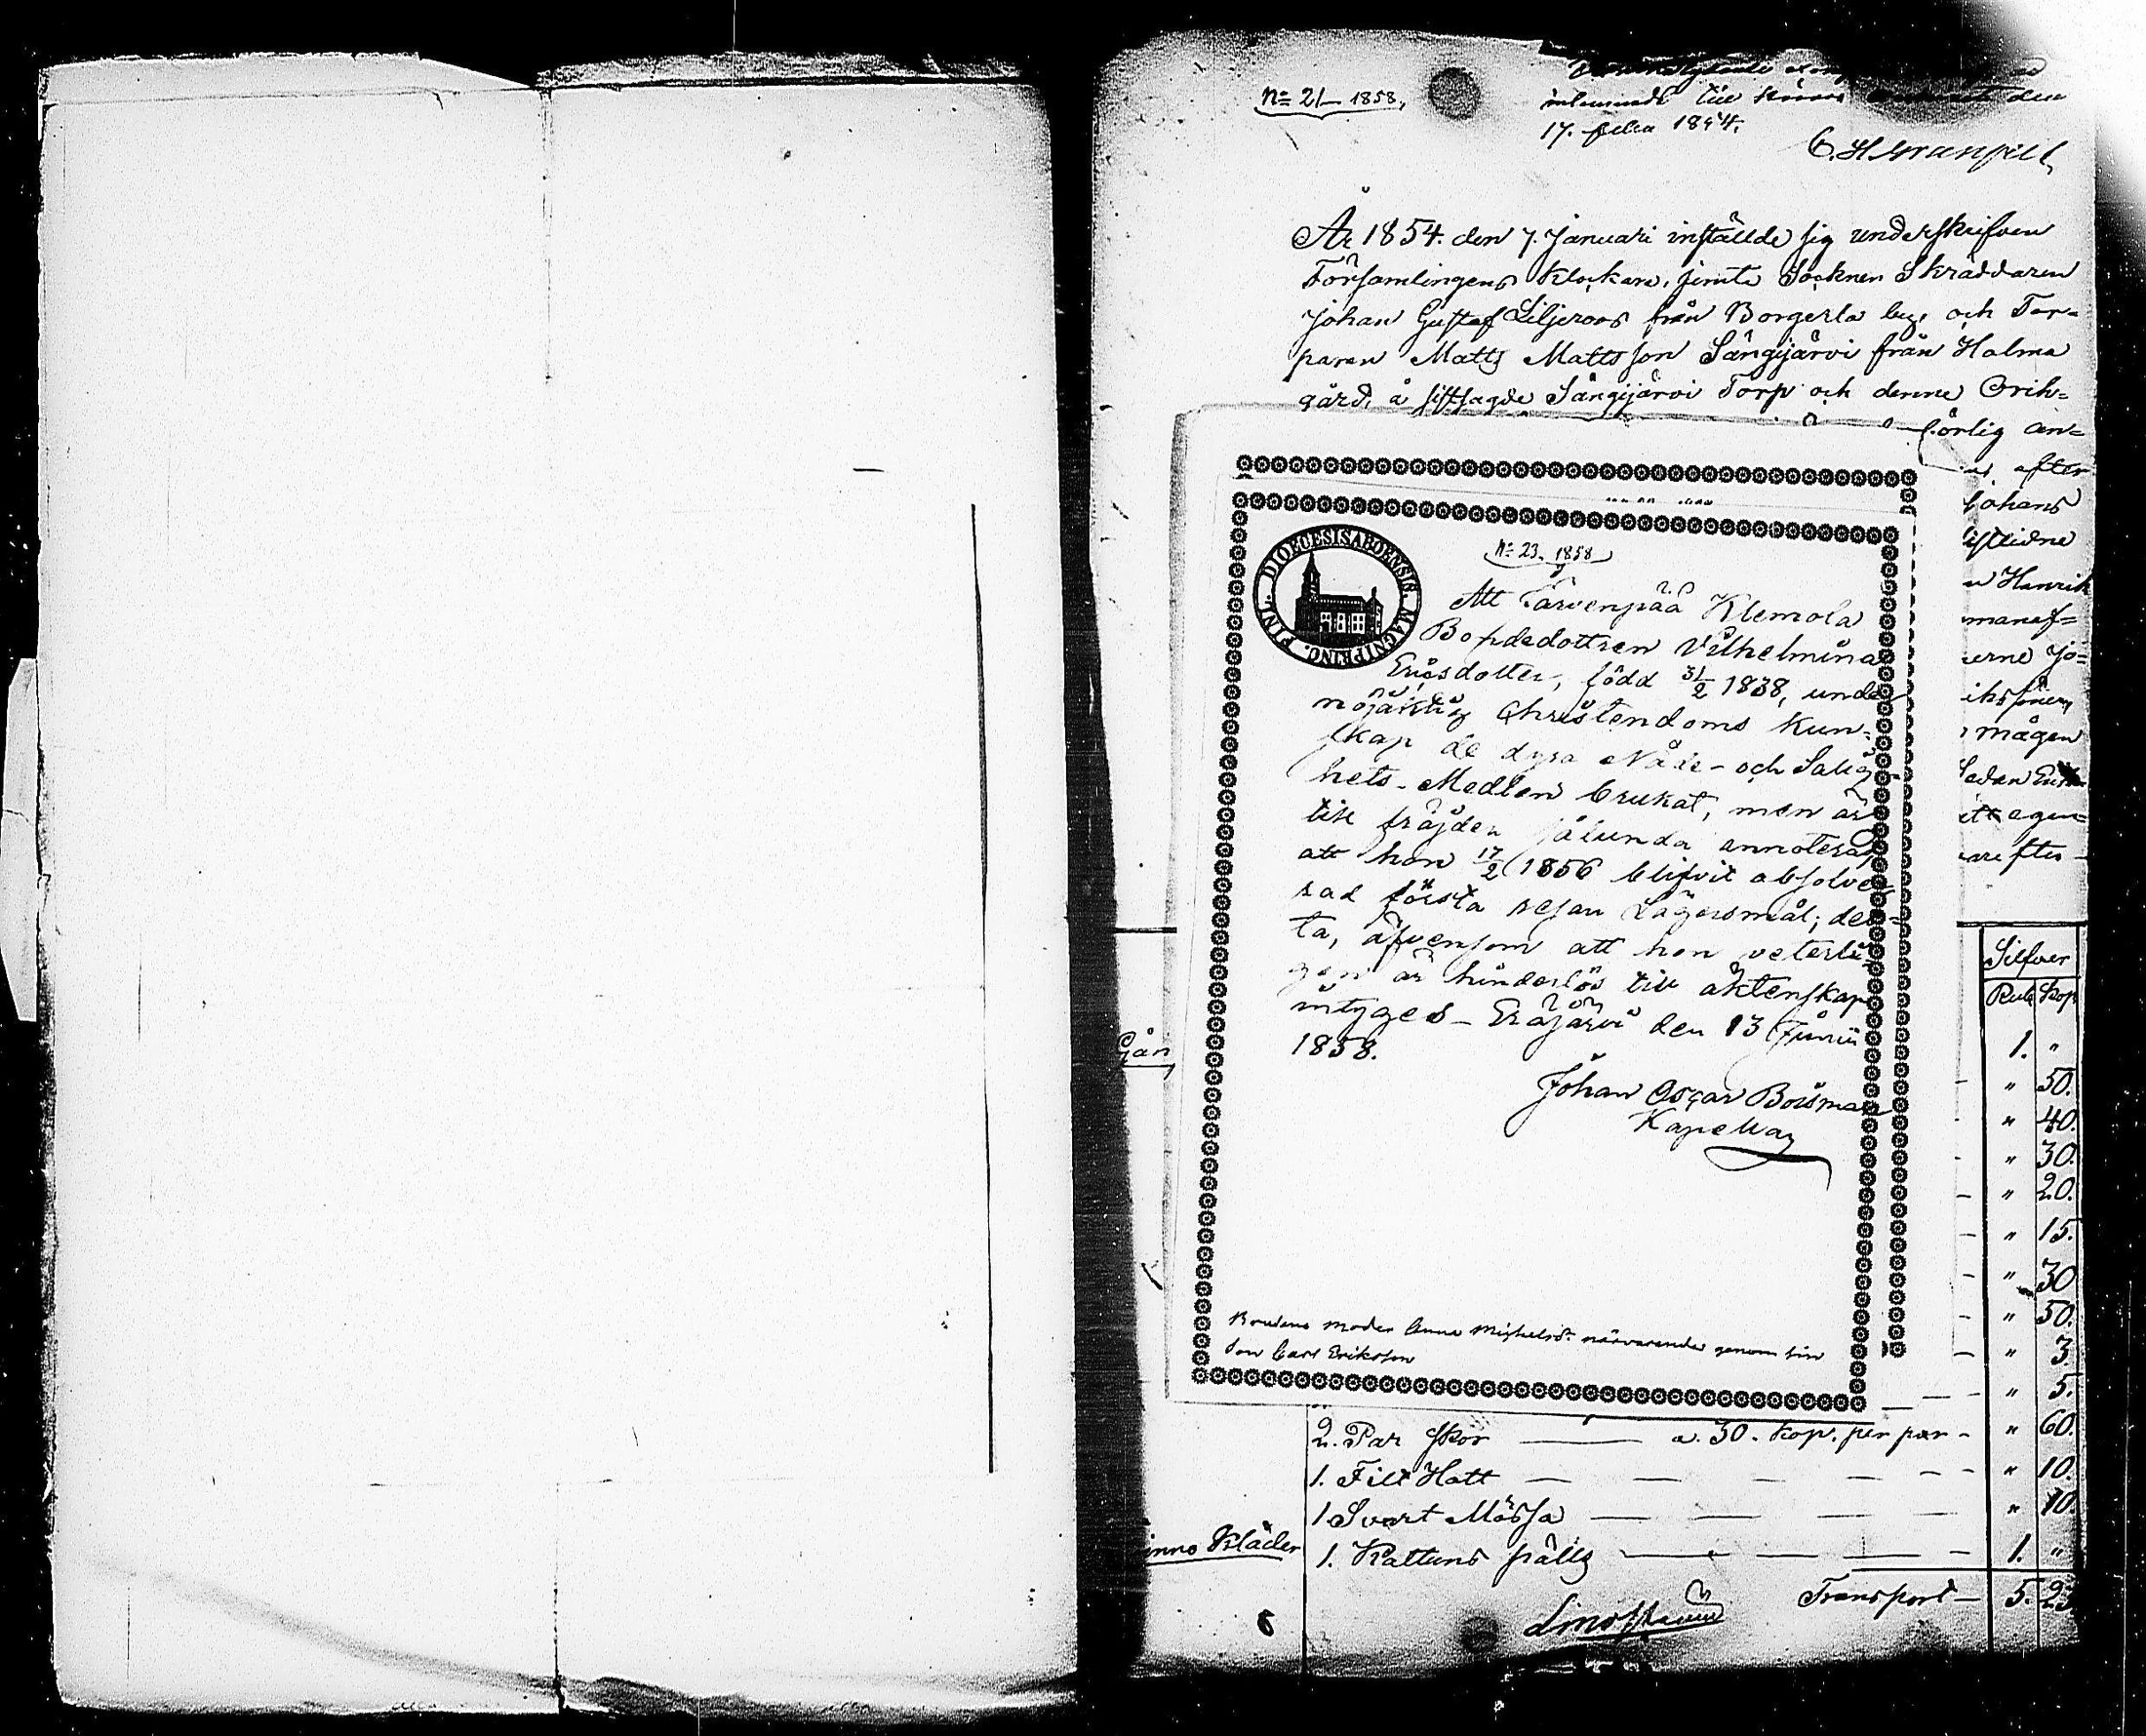 No 21 1858,
inlemnade till den
17. febr 1854.
År 1854. den 7. Januari inställde sig underskrifven
Församlingens Klockare, jemte Socknen Skräddaren
Johan Gustaf Liljeroos från Borgerla by, och Tor=
paren Matts Mattsson Sängijärvi från Halma
gård, å sistsagde Sängijärvi Torp och denne Orik=
förlig an=
efter
Johans
Henrik
mågen
Sedan
egen=
DIOECESIS ABOENSIS. MAGNI PRINC. FINL.
No 23. 1858
Att Järvenpää Klemola
Bondedottren Vilhelmina
Ericsdotter, född 31/2 1838, under
nöjaktig Christendoms kun=
skap de dyra Nåde- och Salig-
hets-Medlen brukat, men är
till fräjden sålunda annoterad,
att hon 17/2 1856 blifvit absolve-
rad första resan Lägersmål; det-
ta, äfvensom att hon veterli-
gen är hinderlös till äktenskap
intygas - Eräjärvi den 13 Junii
1858.
Johan Oscar Boisman
Kapellan
Brudens moder Anna Michelsdr närvarande genom sin
son Carl Eriksson
Silfver
Rub Kop
1. "
" 50.
" 40.
" 30.
" 20.
" 15.
" 30
" 50.
" 3
" 5.
2. Par skor a. 30. kop. per par - " 60.
1. Filt Hatt " 10.
1 Svart Mössa " 10.
inns Kläder 1. Kattuns fälls 1. "
Transport 5. 23